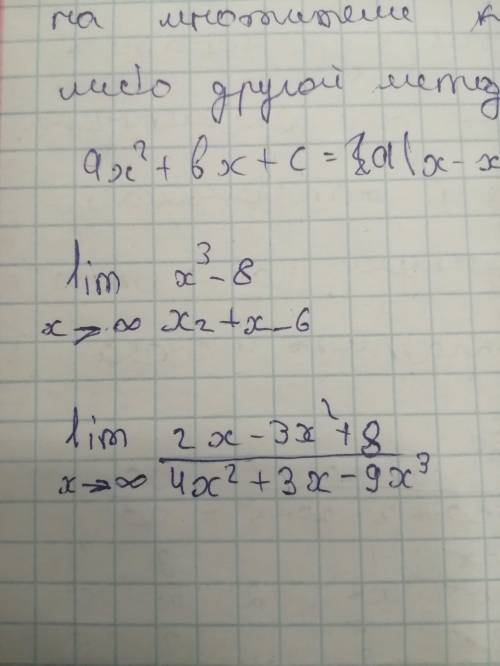 на множители
либо другой метод
ax² + bx + c = a(x - x
lim x³ - 8
x → ∞ x2 + x - 6
lim 2x - 3x² + 8
x → ∞ 4x² + 3x - 9x³